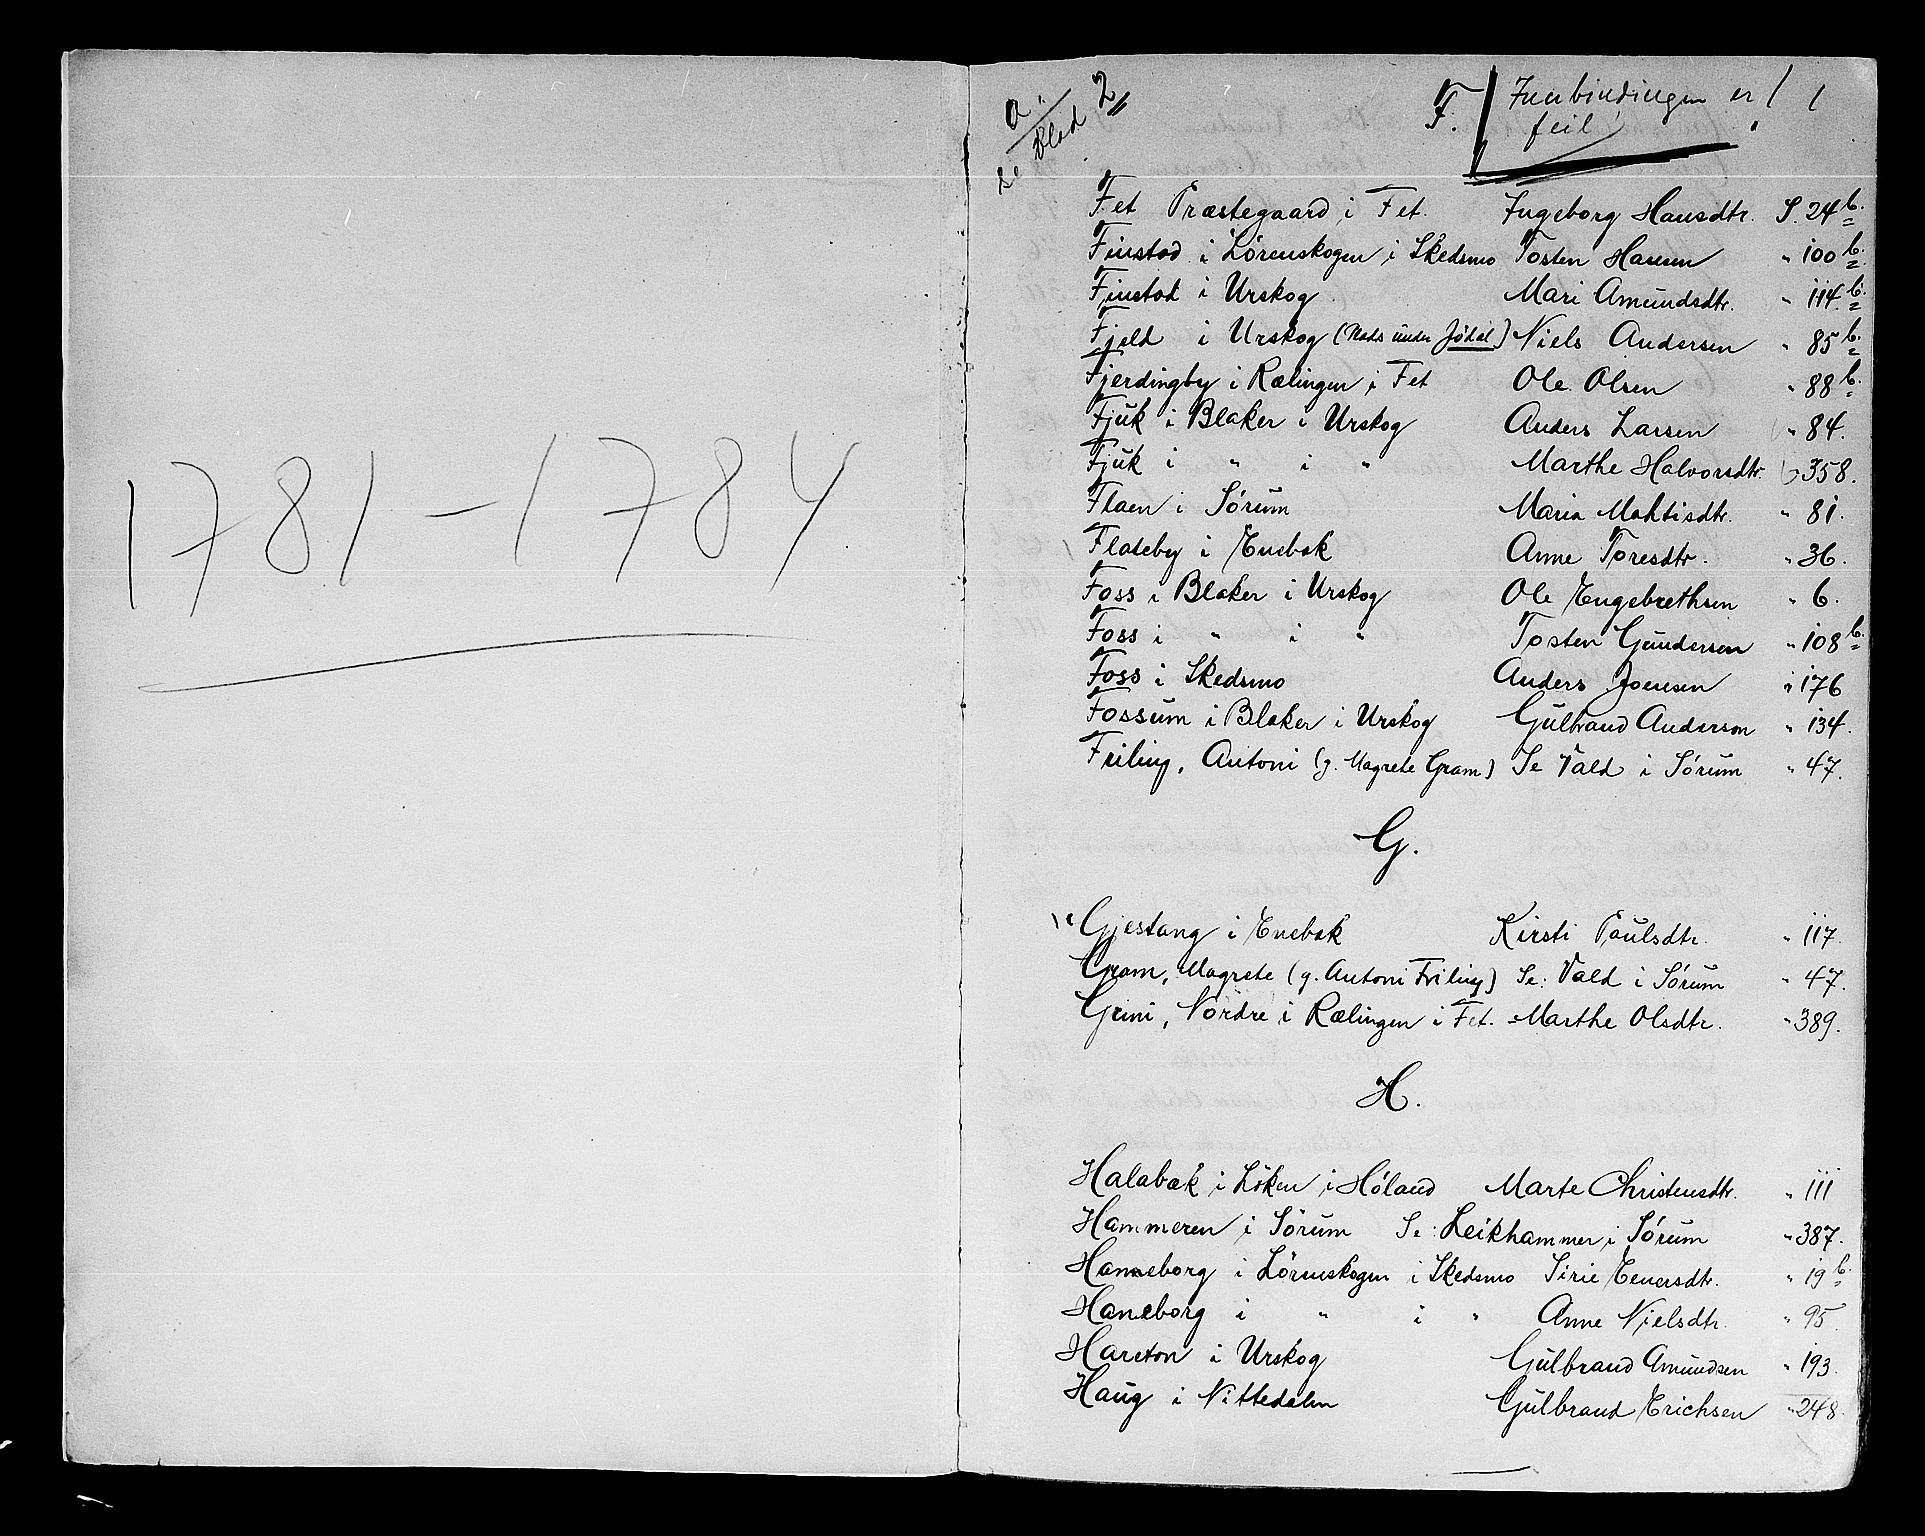 1781-1784
a.
se Blad 2
F.
Innbindingen er
feil!
1
Fet Præstegaard i Fet. Ingeborg Hansdtr. S. 24 b.
Finstad i Lörenskogen i Skedsmo Tosten Hansen " 100 b.
Finstad i Urskog Mari Amundsdtr. " 114 b.
Fjeld i Urskog (Nads under Jødal) Niels Andersen " 85 b.
Fjerdingby i Rælingen i Fet Ole Olsen " 88 b.
Fjuk i Blaker i Urskog Anders Larsen " 84.
Fjuk i " i " Marthe Halvorsdtr. " 358.
Flaen i Sörum Maria Mahtisdtr. " 81.
Flateby i Enebak Anne Toresdtr. " 36.
Foss i Blaker i Urskog Ole Engebrethsen " 6.
Foss i " i " Tosten Gundersen " 108 b.
Foss i Skedsmo Anders Joensen " 176
Fossum i Blaker i Urskog Gulbrand Anderson " 134.
Friling, Antoni (g. Magrete Gram) Se Vald i Sörum " 47.
G.
Gjestang i Enebak Kirsti Paulsdtr. " 117.
Gram, Magrete (g. Antoni Friling) Se: Vald i Sörum " 47.
Grini, Nordre i Rælingen i Fet. Marthe Olsdtr. " 389.
H.
Halabæk i Löken i Höland Marte Christensdtr. " 111
Hammeren i Sörum Se: Leikhammer i Sörum " 387.
Hanneborg i Lörenskogen i Skedsmo Sirie Enersdtr. " 19 b.
Haneborg i " i " Anne Nielsdtr. " 95.
Hareton i Urskog Gulbrand Amundsen " 193.
Haug i Nittedalen Gulbrand Erichsen " 248.